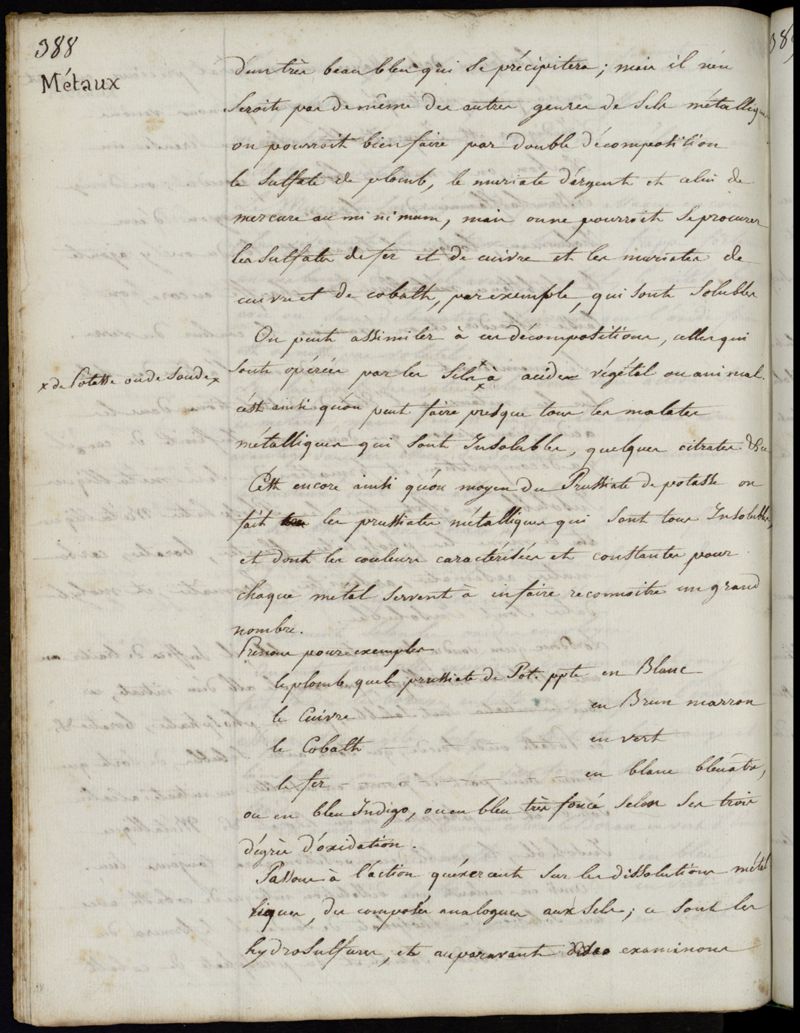 388
Métaux
d'un très beau bleu qui se précipitera ; mais il n'en
seroit pas de même des autres genres de Sels métalliques
on pourroit bien faire par double décomposition
le Sulfate de plomb, le muriate d'argent et celui de
mercure au minimum, mais on ne pourroit se procurer
les Sulfates de fer et de cuivre et les muriates de
cuivre et de cobalth, par exemple, qui sont solubles
On peut assimiler à ces décompositions, celles qui
x de Potasse ou de Soude x
sont opérées par les Sels x à acides végétal ou animal.
c'est ainsi qu'on peut faire presque tous les malates
métalliques qui sont Insolubles, quelques citrates &a
C'est encore ainsi qu'au moyen du Prussiate de potasse on
fait les prussiates métalliques qui sont tous Insolubles,
et dont les couleurs caractérisées et constantes pour
chaque métal servent à en faire reconnoitre un grand
nombre.
Prenons pour exemples
le plomb que le prussiate de Pot. ppte en Blanc
le Cuivre en Brun marron
le Cobalth en vert
le fer en blanc bleuâtre,
ou en bleu Indigo, ou en bleu très foncé selon ses trois
dégrés d'oxidation.
Passons à l'action qu'exercent sur les dissolutions métal
liques, des composés analogues aux Sels ; ce sont les
hydrosulfures, et auparavant examinons